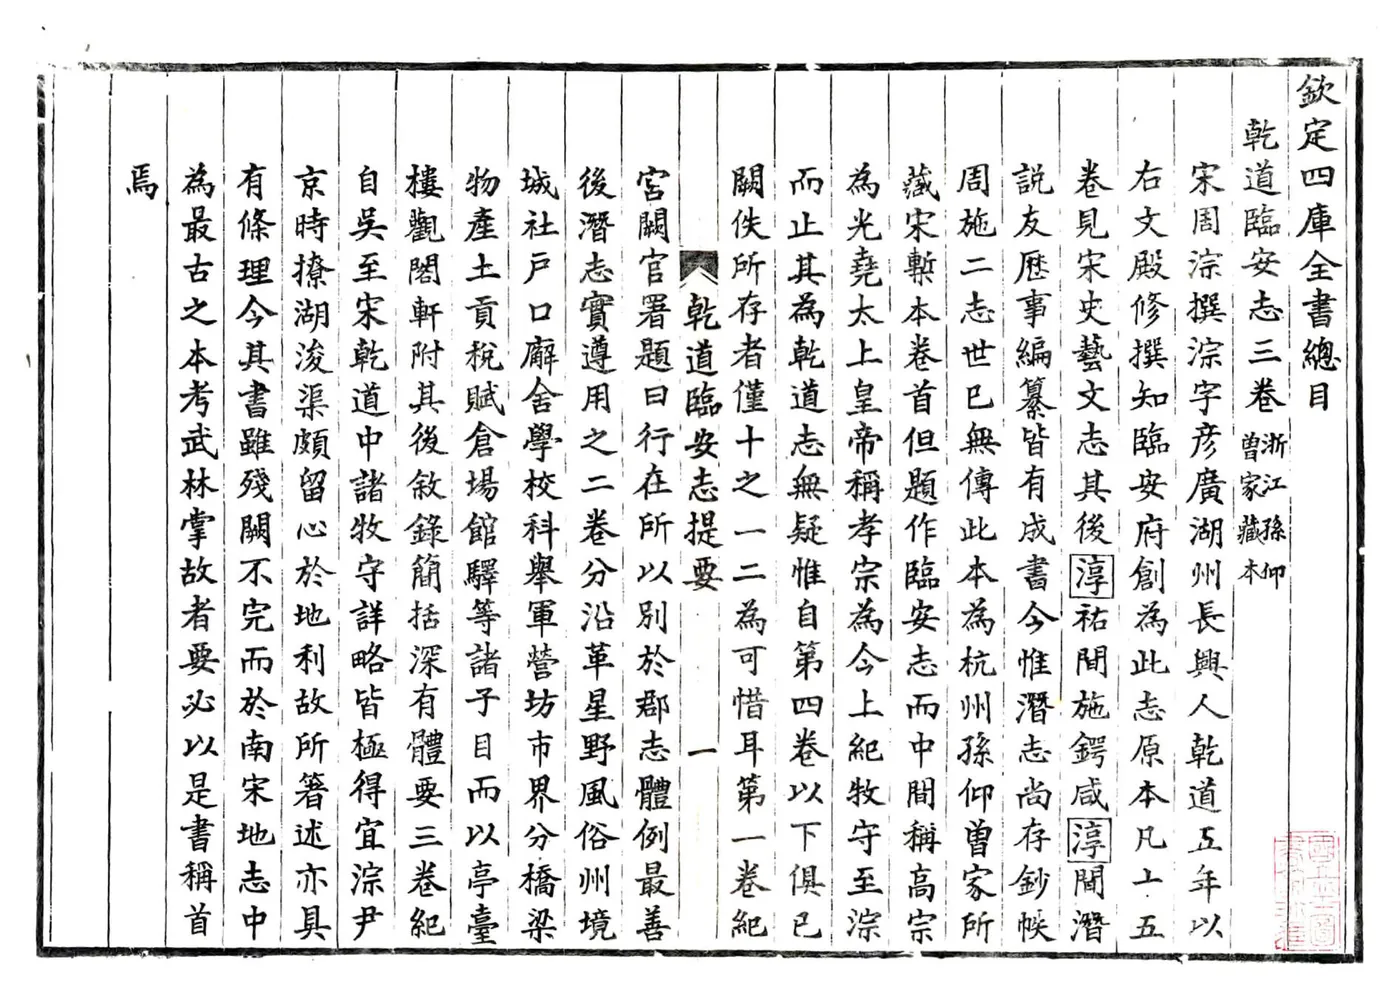 欽定四庫全書總目
乾道臨安志三卷浙江孫仰曾家藏本
宋周淙撰淙字彦廣湖州長興人乾道五年以
右文殿修撰知臨安府創為此志原本凡十五
卷見宋史藝文志其後淳祐間施鍔咸淳間潛
説友歷事編纂皆有成書今惟潛志尚存鈔帙
周施二志世已無傳此本為杭州孫仰曾家所
藏宋槧本卷首但題作臨安志而中間稱高宗
為光堯太上皇帝稱孝宗為今上紀牧守至淙
而止其為乾道志無疑惟自第四卷以下俱已
闕佚所存者僅十之一二為可惜耳第一卷紀
乾道臨安志提要
一
宮闕官署題曰行在所以別於郡志體例最善
後潛志實遵用之二卷分沿革星野風俗州境
城社戸口廨舍學校科舉軍營坊市界分橋梁
物產土貢稅賦倉場館驛等諸子目而以亭臺
樓觀閣軒附其後敘錄簡括深有體要三卷紀
自吳至宋乾道中諸牧守詳略皆極得宜淙尹
京時撩湖浚渠頗留心於地利故所著述亦具
有條理今其書雖殘闕不完而於南宋地志中
為最古之本考武林掌故者要必以是書稱首
焉